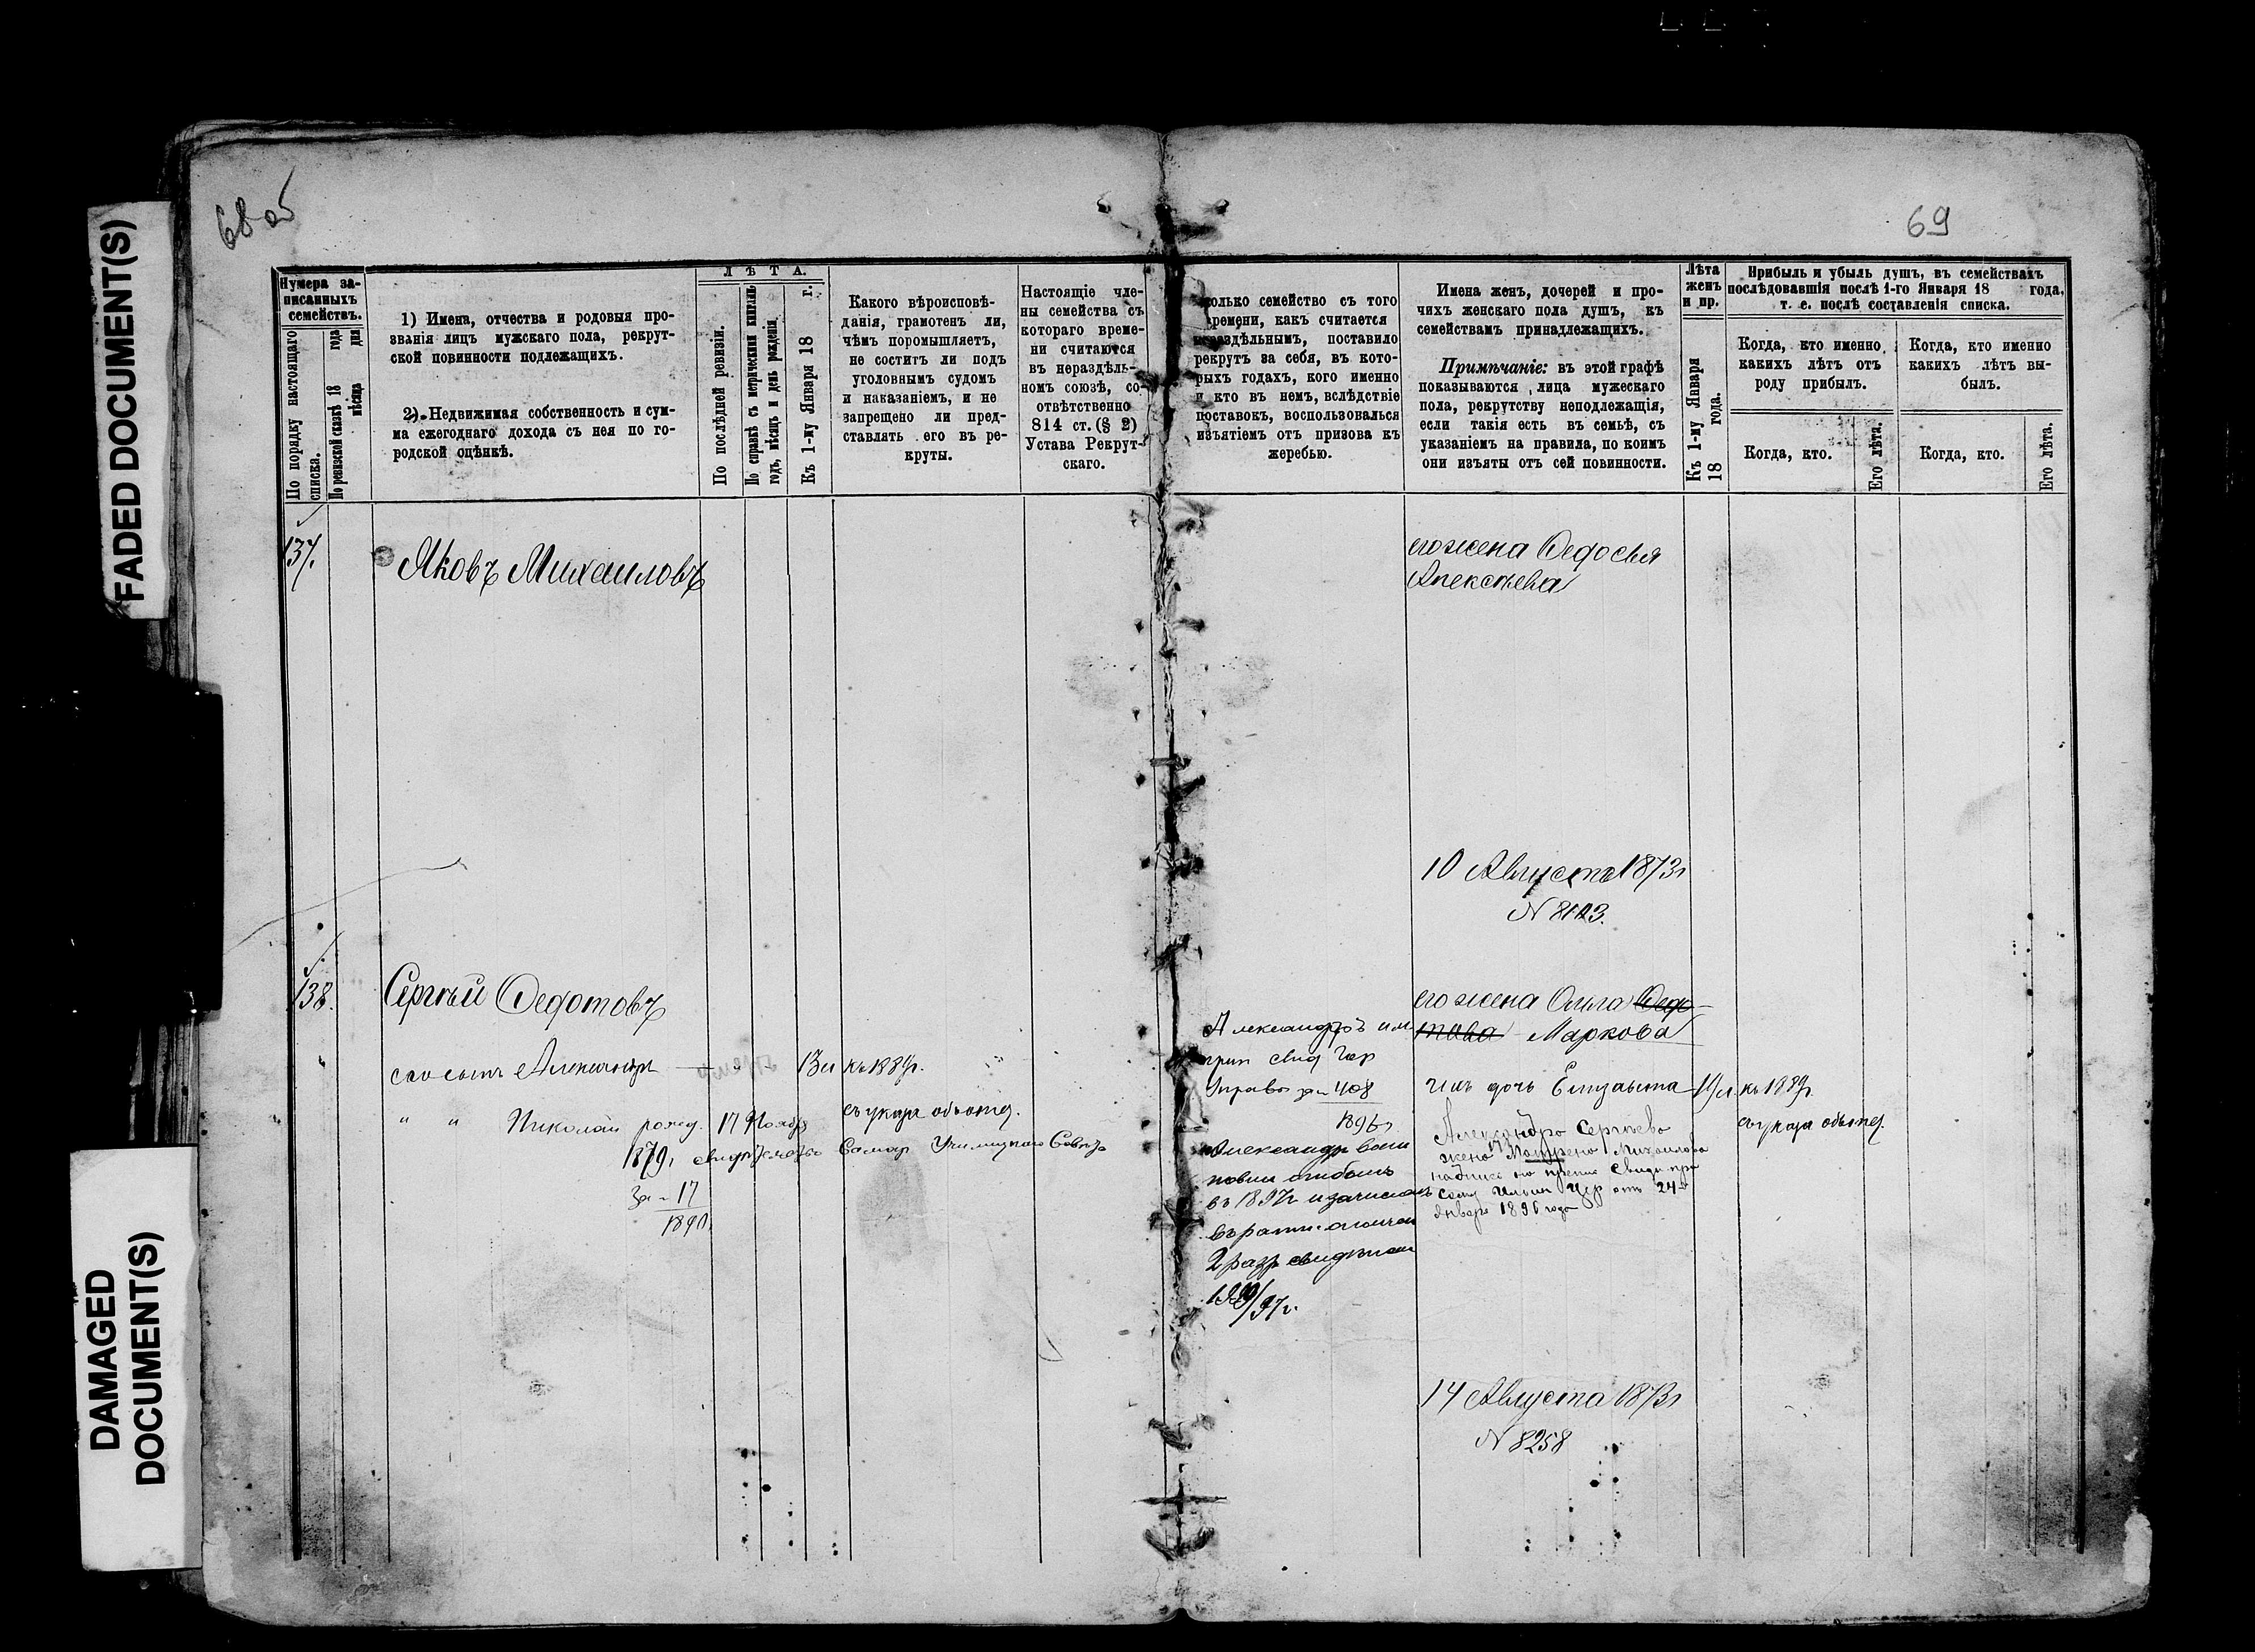 FADED DOCUMENT(S)
DAMAGED
DOCUMENT(S)
68 об
69
Нумера за-
писанныхъ
семействъ.
По порядку настоящаго
списка.
По ревизской сказкѣ 18 года
мѣсяца дня
1) Имена, отчества и родовыя про-
званія лицъ мужскаго пола, рекрут-
ской повинности подлежащихъ.
2) Недвижимая собственность и сум-
ма ежегоднаго дохода съ нея по го-
родской оцѣнкѣ.
ЛѢТА.
По послѣдней ревизіи.
По справкѣ съ метрическими книгами
годъ, мѣсяцъ и день рожденія
Къ 1-му Января 18 г.
Какого вѣроисповѣ-
данія, грамотенъ ли,
чѣмъ поромышляетъ,
не соститъ ли подъ
уголовнымъ судомъ
и наказаніемъ, и не
запрещено ли пред-
ставлять его въ ре-
круты.
Настоящіе чле-
ны семейства съ
котораго време-
ни считаются
въ нераздѣль-
номъ союзѣ, со-
отвѣтственно
814 ст. (§ 2)
Устава Рекрут-
скаго.
колько семейство съ того
времени, какъ считается
нераздѣльнымъ, поставило
рекрутъ за себя, въ кото-
рыхъ годахъ, кого именно
и кто въ немъ, вслѣдствіе
поставокъ, воспользовался
изъятіемъ отъ призова къ
жеребью.
Имена женъ, дочерей и про-
чихъ женскаго пола душъ, къ
семействамъ принадлежащихъ.
Примѣчаніе: въ этой графѣ
показываются лица мужескаго
пола, рекрутству неподлежащія,
если такія есть въ семьѣ, съ
указаніемъ на правила, по коимъ
они изъяты отъ сей повинности.
Лѣта
женъ
и пр.
Къ 1-му Января
18 года.
Прибыль и убыль душъ, въ семействахъ
послѣдовавшія послѣ 1-го Января 18 года,
т. е. послѣ составленія списка.
Когда, кто именно
какихъ лѣтъ отъ
роду прибылъ.
Когда, кто.
Его лѣта.
Когда, кто именно
какихъ лѣтъ вы-
былъ.
Когда, кто.
Его лѣта.
137.
Яковъ Михаиловъ
его жена Федосья
Алексѣева
10 Августа 1873г
N 8123.
138.
Сергѣй Федотовъ
его жена Ольга Федо-
това Маркова
его сынъ Александръ
13л къ 1889г.
" " Николай рожд. 17 Ноября
1879г
Самар Училищнаго Совѣта
За N 17
1890.
Управы за N 408
1896г
Александръ
въ 1897г и зачисленъ
въ ратн. ополчен
2 разр
/97г.
ихъ дочь Елизавета 19л. къ 1889г.
Александра Сергѣева
жена Матрена Михайлова
отъ 24го
Января 1896 года
14 Августа 1873г
N 8258